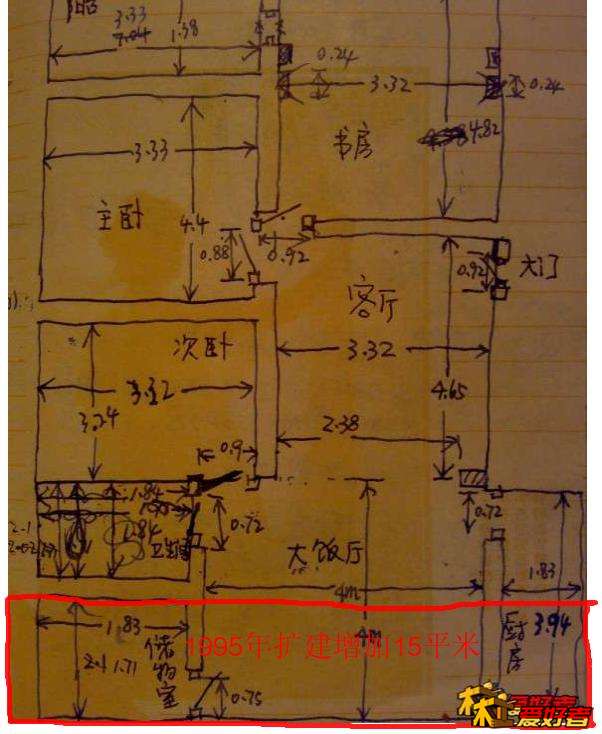 阳台
3.33
1.38
0.24
3.32
0.24
书房
4.82
3.33
主卧
4.4
0.88
0.92
客厅
0.92
大门
次卧
3.32
4.65
3.32
3.24
2.38
0.9
1.84
1.84
卫生间
0.72
0.72
大饭厅
4m
1.83
4m
1.83
储物室
1995年扩建增加15平米
厨房
3.94
2.1
1.71
0.75
爱好者